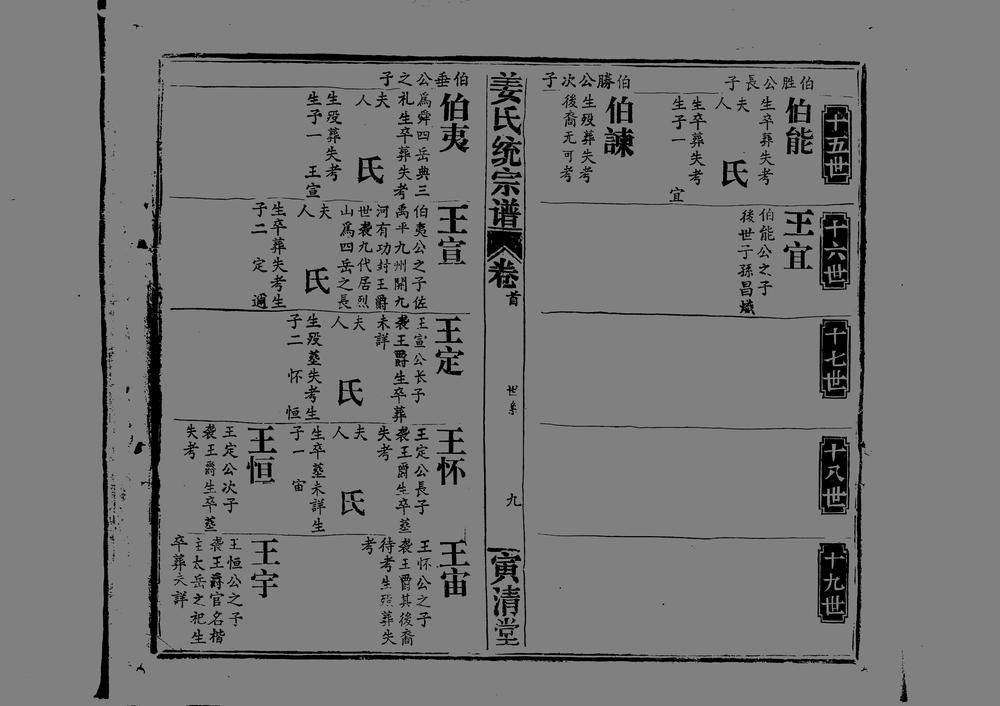 十五世
伯胜公長子
伯能
生卒葬失考
夫人
氏
生卒葬失考
生子一
宜
伯勝公次子
伯諫
公生殁葬失考
後裔无可考
十六世
王宜
伯能公之子
後世子孫昌熾
十七世
十八世
十九世
姜氏统宗谱
卷首
世系
九
寅清堂
伯垂公之子
伯夷
公爲舜四岳典三
之礼生卒葬失考
夫人
氏
生殁葬失考
生子一
王宣
王宣
伯夷公之子佐
禹平九州開九
河有功封王爵
世袭九代居烈
山爲四岳之長
夫人
氏
生卒葬失考生
子二
定
週
王定
王宣公长子
袭王爵生卒葬
未詳
夫人
氏
生殁墓失考生
子二
怀
恒
王怀
王定公長子
袭王爵生卒墓
失考
夫人
氏
生卒墓未詳生
子一
宙
王恒
王定公次子
袭王爵生卒墓
失考
王宙
王怀公之子
袭王爵其後裔
待考生殁葬失
考
王宇
王恒公之子
袭王爵官名楷
主太岳之祀生
卒葬未詳